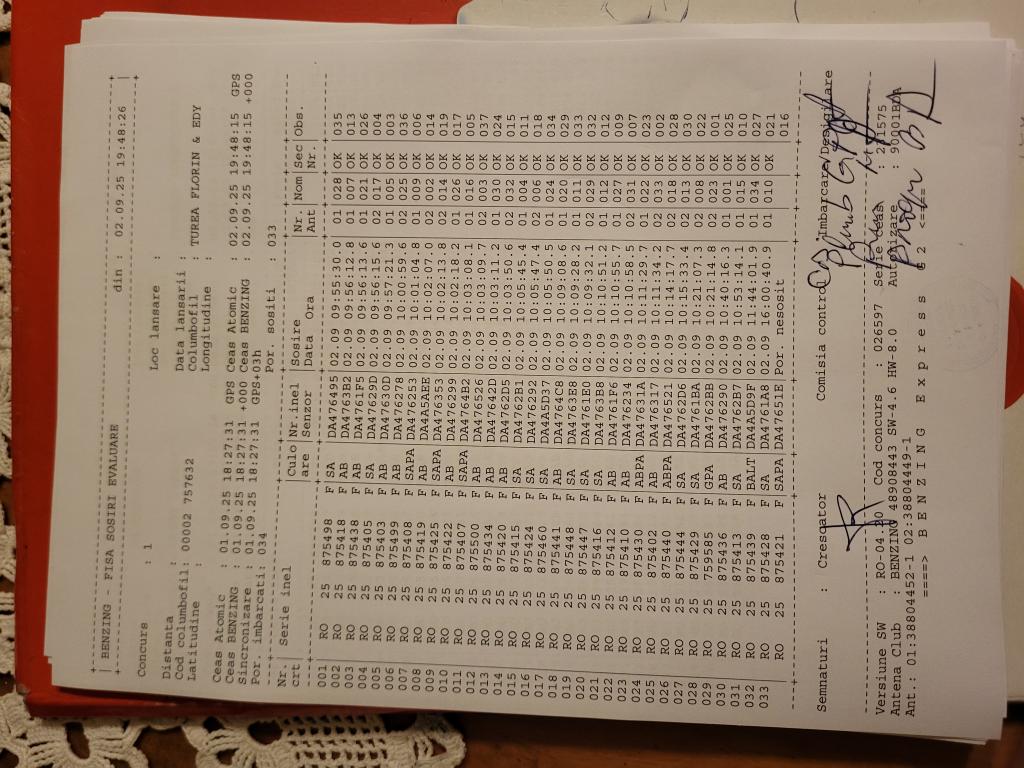 BENZING - FISA SOSIRI EVALUARE din : 02.09.25 19:48:26
Concurs : 1 Loc lansare :
Distanta : Data lansarii :
Cod columbofil: 00002 757632 Columbofil : TUREA FLORIN & EDY
Latitudine : Longitudine :
Ceas Atomic : 01.09.25 18:27:31 GPS Ceas Atomic : 02.09.25 19:48:15 GPS
Ceas BENZING : 01.09.25 18:27:31 +000 Ceas BENZING : 02.09.25 19:48:15 +000
Sincronizare : 01.09.25 18:27:31 GPS+03h
Por. imbarcati: 034 Por. sositi : 033
Nr. Serie inel Culo Nr.inel Sosire Nr. Nom Sec Obs.
crt are Senzor Data Ora Ant Nr.
001 RO 25 875498 F SA DA476495 02.09 09:55:30.0 01 028 OK 035
002 RO 25 875418 F AB DA4763B2 02.09 09:56:12.8 01 007 OK 013
003 RO 25 875438 F AB DA4761F5 02.09 09:56:13.6 01 021 OK 026
004 RO 25 875405 F SA DA47629D 02.09 09:56:15.6 02 017 OK 004
005 RO 25 875403 F AB DA47630D 02.09 09:57:21.3 01 005 OK 003
006 RO 25 875499 F AB DA476278 02.09 10:00:59.6 02 025 OK 036
007 RO 25 875408 F SAPA DA476253 02.09 10:01:04.8 01 009 OK 006
008 RO 25 875419 F AB DA4A5AEE 02.09 10:02:07.0 01 002 OK 014
009 RO 25 875425 F SAPA DA476353 02.09 10:02:13.8 02 014 OK 019
010 RO 25 875422 F AB DA476299 02.09 10:02:18.2 01 026 OK 017
011 RO 25 875407 F SAPA DA4764B2 02.09 10:03:08.1 01 016 OK 005
012 RO 25 875500 F AB DA476526 02.09 10:03:09.7 02 003 OK 037
013 RO 25 875434 F AB DA47642D 02.09 10:03:11.2 01 030 OK 024
014 RO 25 875420 F AB DA4762D5 02.09 10:03:50.6 02 032 OK 015
015 RO 25 875415 F SA DA4762B1 02.09 10:05:45.4 01 004 OK 011
016 RO 25 875424 F SA DA476292 02.09 10:05:47.4 02 006 OK 018
017 RO 25 875460 F SA DA4A5D37 02.09 10:05:50.5 01 024 OK 034
018 RO 25 875441 F AB DA4764C8 02.09 10:09:08.6 01 020 OK 029
019 RO 25 875448 F SA DA4763E8 02.09 10:09:26.2 01 011 OK 033
020 RO 25 875447 F SA DA4761E0 02.09 10:09:32.1 02 029 OK 032
021 RO 25 875416 F SA DA4763B8 02.09 10:10:28.2 01 OK 012
022 RO 25 875412 F AB DA4761F6 02.09 10:10:51.2 01 OK 009
023 RO 25 875410 F AB DA476234 02.09 10:10:57.7 01 027 OK 007
024 RO 25 875430 F ABPA DA47631A 02.09 10:10:58.5 02 OK 023
025 RO 25 875402 F AB DA476317 02.09 10:11:34.2 01 022 OK 002
026 RO 25 875440 F ABPA DA476521 02.09 10:14:17.7 02 OK 028
027 RO 25 875444 F SA DA4762D6 02.09 10:15:33.4 01 018 OK 030
028 RO 25 875429 F SA DA4761BA 02.09 10:21:07.3 02 013 OK 022
029 RO 25 759585 F GPA DA4762BB 02.09 10:21:14.8 02 008 OK 001
030 RO 25 875436 F AB DA476290 02.09 10:40:16.3 01 023 OK 025
031 RO 25 875413 F SA DA4762B7 02.09 10:53:14.1 02 OK 010
032 RO 25 875439 F BALT DA4A5D9F 02.09 11:44:01.9 01 OK 027
033 RO 25 875428 F SA DA4761A8 02.09 16:00:40.9 01 010 OK 021
RO 25 875421 F SAPA DA47651E Por. nesosit 016
Semnaturi : Crescator Comisia control Imbarcare/Desigilare
Versiune SW : RO-04.20 Cod concurs : 026597 Serie Ceas : 211575
Antena Club : BENZING 48908443 SW-4.6 HW-8.0 Autorizare : 90001BDA
Ant.: 01:38804452-1 02:38804449-1
====> B E N Z I N G E x p r e s s G 2 <====